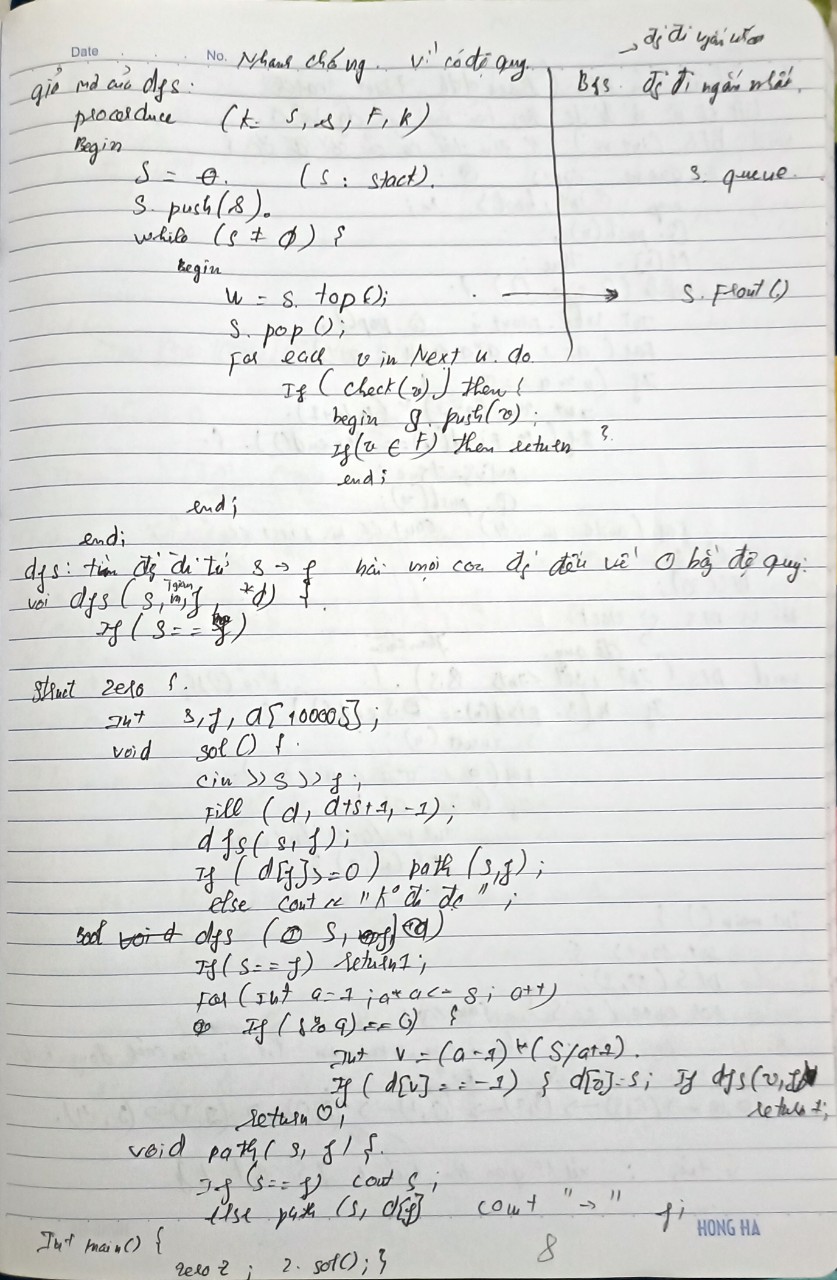 đg đi ngắn
Date No. Nhanh chóng. vì có đệ quy.
giả mã của dfs:
Bfs. đg đi ngắn nhất.
procerduce (k= S, s, F, k)
Begin
S = Ø. (S: stact).
S. queue.
S. push(s).
while (S ≠ Ø) {
Begin
u = S. top();
S. Front()
S. pop();
For each v in Next u. do
If (check(v)) then {
begin S. push(v);
If(v ∈ F) then return }
end;
end;
end;
dfs: tìm đg đi từ s → f bài mọi con đg đều về 0 bằg đệ quy:
void dfs(s, f, *d) {
If (s==f)
Struct zero {
Int s, f, d[10005];
void sol() {
cin >> s >> f;
Fill (d, d+s+1, -1);
dfs(s, f);
If (d[f]>=0) path (s,f);
else cout << "ko đi đc";
Bool void dfs (s, f, d)
If(s==f) return 1;
For(Int a=1; a*a<=s; a++)
If (s%a)==0) {
Int v = (a-1)*(s/a+1).
If (d[v]==-1) { d[v]=s; If dfs(v,f)
return 1;
return 0;
void path(s, f) {.
If (s==f) cout s;
else path (s, d[f] cout "→" f;
HONG HA
Int main() {
8
zero z; z. sol(); }